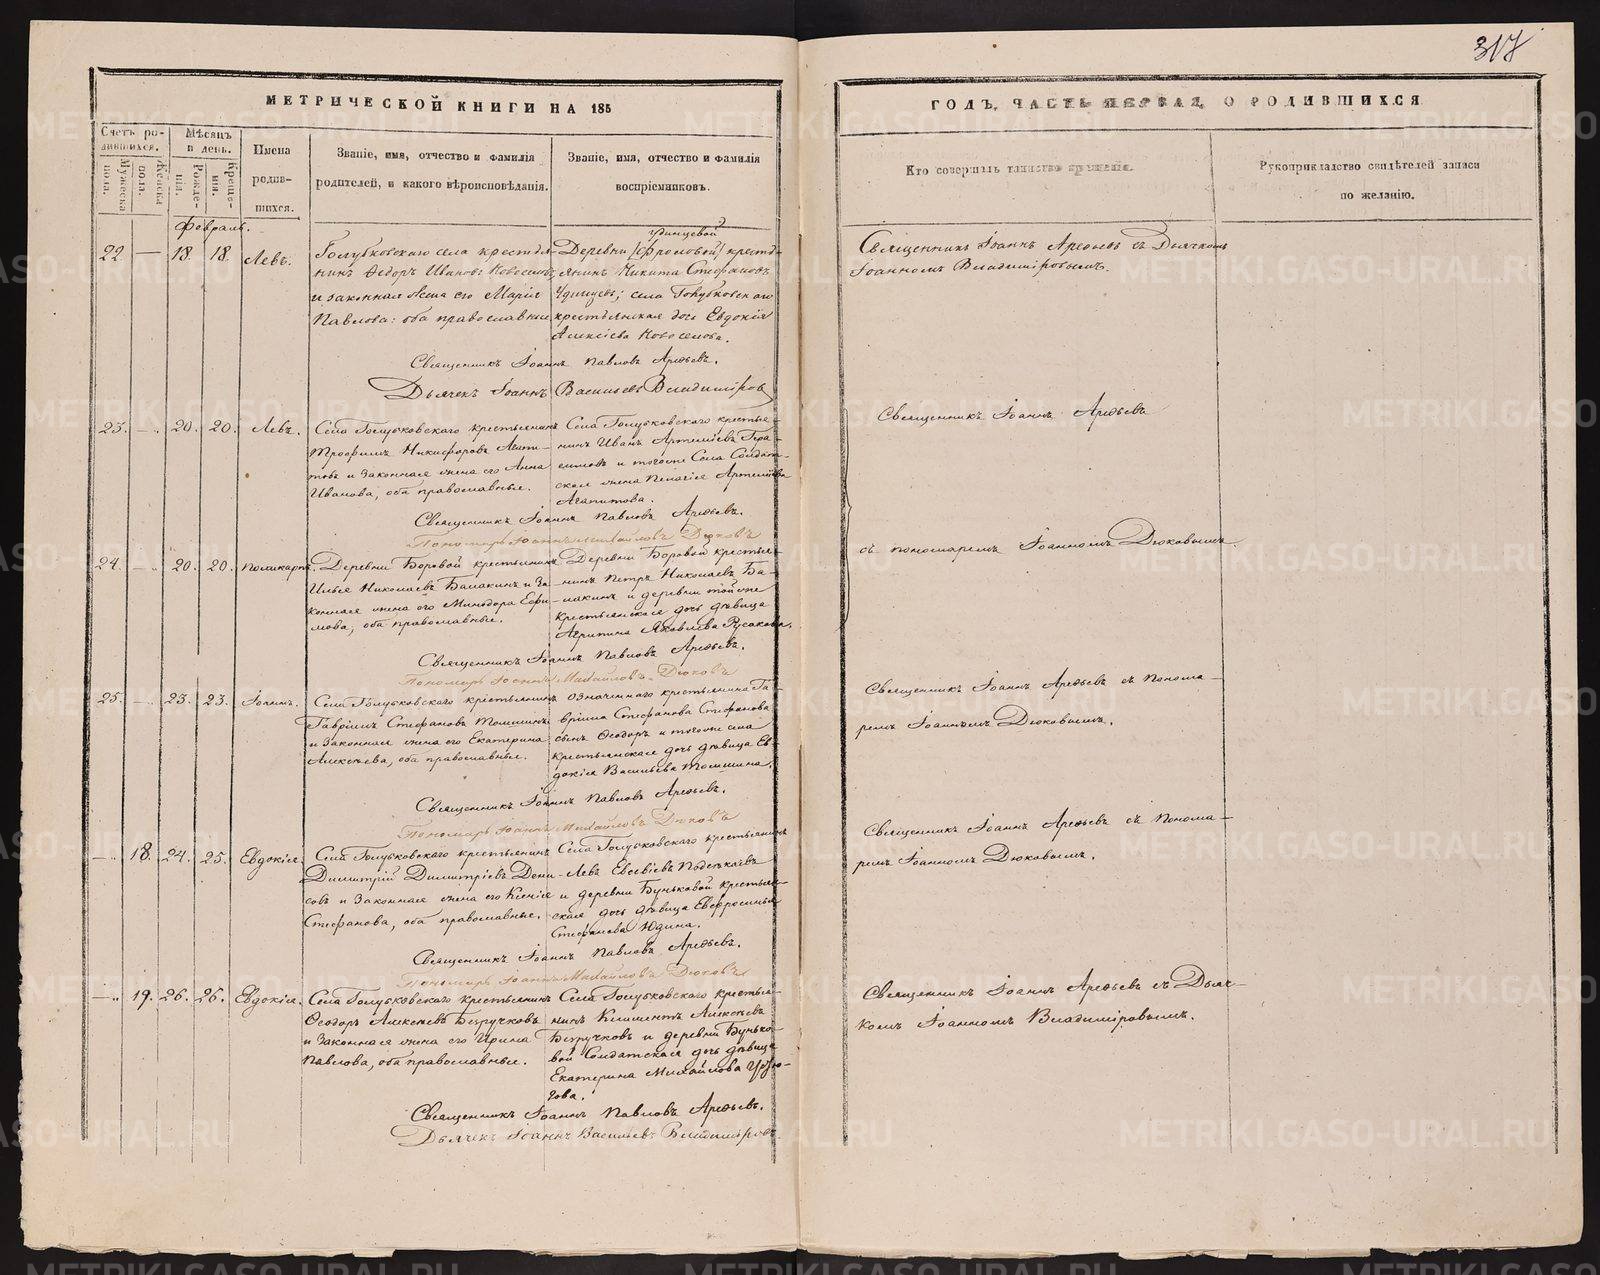 317
МЕТРИЧЕСКОЙ КНИГИ НА 185
Счетъ ро-
дившихся.
Мужеска
пола.
Женска
пола.
Мѣсяцъ
и день.
Рожде-
нія.
Креще-
нія.
Имена
родив-
шихся.
Званіе, имя, отчество и фамилія
родителей, и какого вѣроисповѣданія.
Званіе, имя, отчество и фамилія
воспріемниковъ.
Февраль.
22 — 18. 18. Левъ.
Голубковскаго села крестья-
нинъ Ѳедоръ Ивановъ Новоселовъ,
и законная жена его Марія
Павлова: оба православные
Удинцевой
Деревни (Фроловой) кресть-
янинъ Никита Стефановъ
Удинцевъ; села Голубковскаго
крестьянская дочь Евдокія
Алексіева Новоселова.
Священникъ Іоаннъ Павловъ Арефьевъ.
Дьячекъ Іоаннъ Васильевъ Владиміровъ
23. — 20. 20. Левъ.
Села Голубковскаго крестьянинъ
Трофимъ Никифоровъ Агапи-
товъ и законная жена его Анна
Иванова, оба православные.
Села Голубковскаго крестья-
нинъ Иванъ Артеміевъ Гера-
симовъ и тогоже Села Солдат-
ская жена Пелагія Артеміева
Агапитова.
Священникъ Іоаннъ Павловъ Арефьевъ.
Пономарь Іоаннъ Михайловъ Дюковъ
24. — 20. 20. Поликарпъ.
Деревни Боровой крестьянинъ
Илья Николаевъ Балакинъ и за-
конная жена его Минодора Ефи-
мова, оба православные.
Деревни Боровой крестья-
нинъ Петръ Николаевъ Ба-
лакинъ и деревни тойже
крестьянская дочь дѣвица
Агрипина Яковлева Русакова.
Священникъ Іоаннъ Павловъ Арефьевъ.
Пономарь Іоаннъ Михайловъ Дюковъ
25. — 23. 23. Іоаннъ.
Села Голубковскаго крестьянинъ
Гавріилъ Стефановъ Томшинъ
и законная жена его Екатерина
Алексѣева, оба православные.
означеннаго крестьянина Га-
вріила Стефанова Стефанова
сынъ Ѳеодоръ и тогоже села
крестьянская дочь дѣвица Ев-
докія Васильева Томшина.
Священникъ Іоаннъ Павловъ Арефьевъ.
Пономарь Іоаннъ Михайловъ Дюковъ
— 18. 24. 25. Евдокія.
Села Голубковскаго крестьянинъ
Димитрій Димитріевъ Дени-
совъ и законная жена его Ксенія
Стефанова, оба православные.
Села Голубковскаго крестьянинъ
Левъ Евсевіевъ Подсѣкаевъ
и деревни Буньковой крестьян-
ская дочь дѣвица Евфросинья
Стефанова Юдина.
Священникъ Іоаннъ Павловъ Арефьевъ.
Пономарь Іоаннъ Михайловъ Дюковъ
— 19. 26. 26. Евдокія.
Села Голубковскаго крестьянинъ
Ѳеодоръ Алексѣевъ Безручковъ
и законная жена его Ирина
Павлова, оба православные.
Села Голубковскаго крестья-
нинъ Климентъ Алексѣевъ
Безручковъ и деревни Бунько-
вой Солдатская дочь дѣвица
Екатерина Михайлова
Священникъ Іоаннъ Павловъ Арефьевъ.
Дьячекъ Іоаннъ Васильевъ Владиміровъ.
ГОДЪ, ЧАСТЬ ПЕРВАЯ, О РОДИВШИХСЯ
Кто совершалъ таинство крещенія.
Рукоприкладство свидѣтелей записи
по желанію.
Священникъ Іоаннъ Арефьевъ съ Дьячкомъ
Іоанномъ Владиміровымъ.
Священникъ Іоаннъ Арефьевъ
съ пономаремъ Іоанномъ Дюковымъ.
Священникъ Іоаннъ Арефьевъ съ Понома-
ремъ Іоанномъ Дюковымъ.
Священникъ Іоаннъ Арефьевъ съ Понома-
ремъ Іоанномъ Дюковымъ.
Священникъ Іоаннъ Арефьевъ съ Дьяч-
комъ Іоанномъ Владиміровымъ.
METRIKI.GASO-URAL.RU